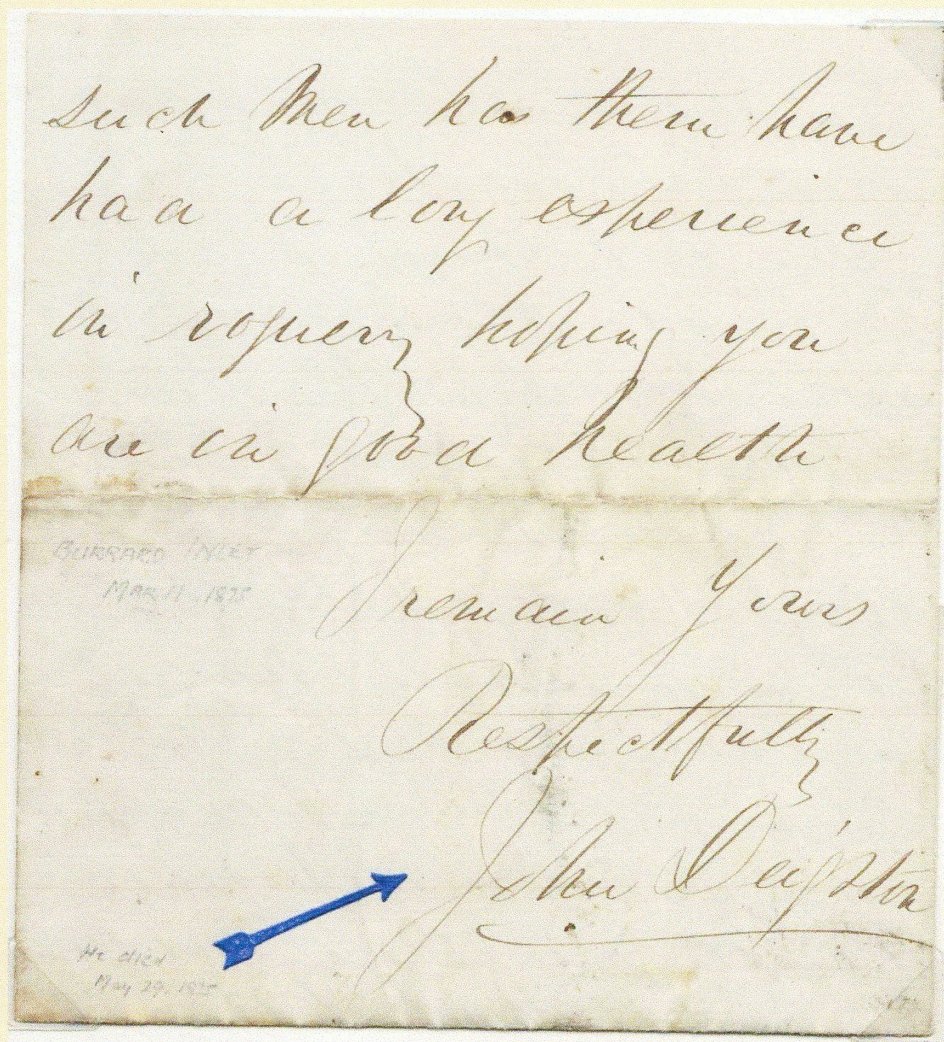 such Men has them have
had a long experience
in roguery hoping you
are in good health
BURRARD INLET
MAR 11. 1875
I remain Yours
Respectfully
John Deighton
He died
May 29, 1875